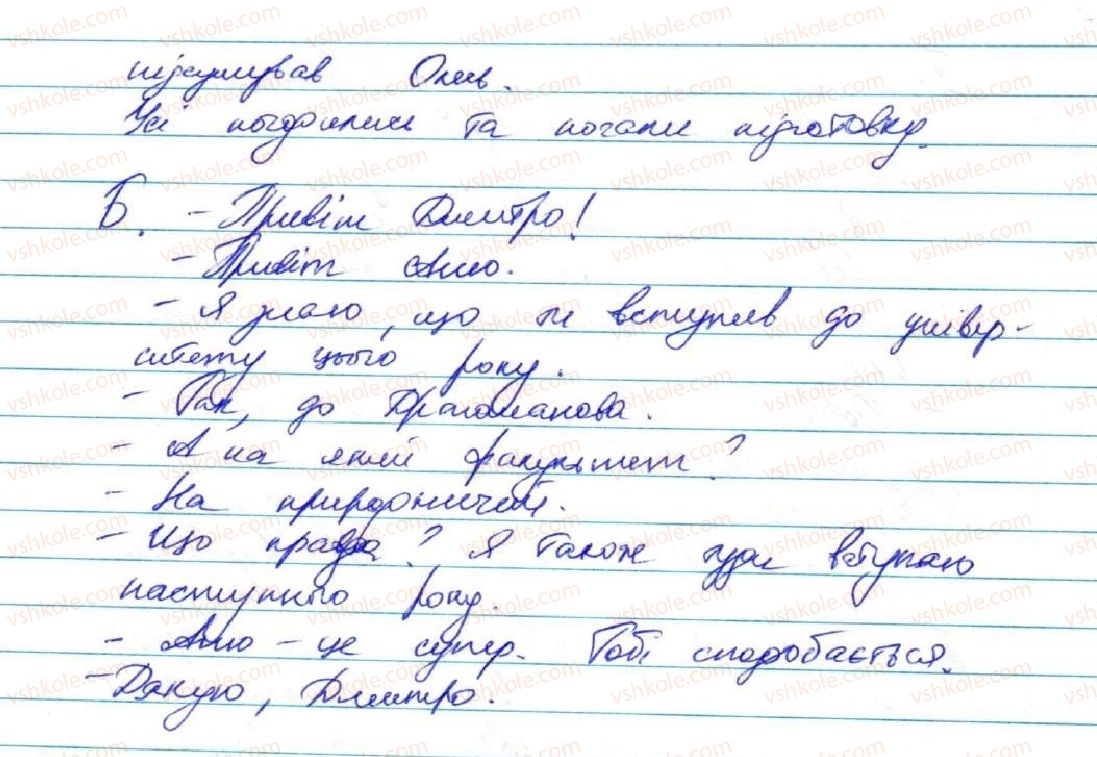 підсумував Олег.
Усі погодились та почали підготовку.
Б. - Привіт Дмитро!
- Привіт Аню.
- Я знаю, що ти вступив до універ-
ситету цього року.
- Так, до Драгоманова.
- А на який факультет?
- На природничий.
- Що правда? Я також туди вступаю
наступного року.
- Аню - це супер. Тобі сподобається.
- Дякую, Дмитро.